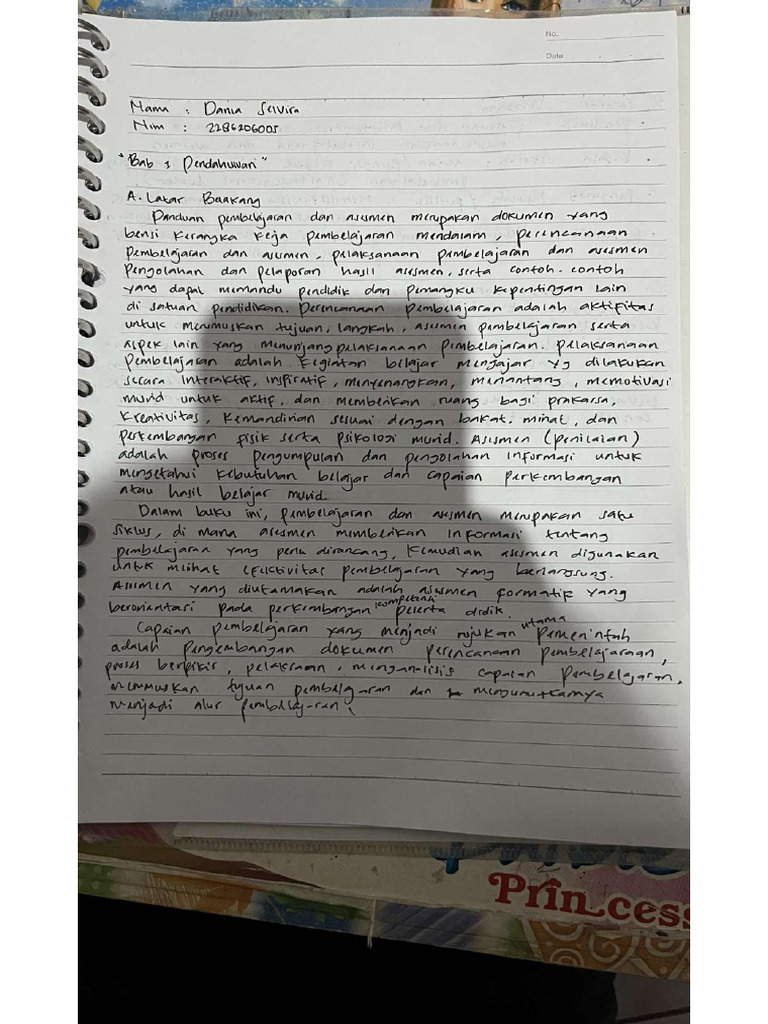 No.
Date
Nama : Dania Selvira
Nim : 2286206005
"Bab 1 Pendahuluan"
A. Latar Belakang
Panduan pembelajaran dan asesmen merupakan dokumen yang
berisi kerangka kerja pembelajaran mendalam, perencanaan
pembelajaran dan asesmen, pelaksanaan pembelajaran dan asesmen
pengolahan dan pelaporan hasil asesmen, serta contoh-contoh
yang dapat memandu pendidik dan pemangku kepentingan lain
di satuan pendidikan. Perencanaan pembelajaran adalah aktifitas
untuk merumuskan tujuan, langkah, asesmen pembelajaran serta
aspek lain yang menunjang pelaksanaan pembelajaran. pelaksanaan
pembelajaran adalah kegiatan belajar mengajar yg dilakukan
secara interaktif, inspiratif, menyenangkan, menantang, memotivasi
murid untuk aktif, dan memberikan ruang bagi prakarsa,
kreativitas, kemandirian sesuai dengan bakat. minat, dan
perkembangan fisik serta psikologi murid. Asesmen (penilaian)
adalah proses pengumpulan dan pengolahan informasi untuk
mengetahui kebutuhan belajar dan capaian perkembangan
atau hasil belajar murid.
Dalam buku ini, pembelajaran dan asesmen merupakan satu
siklus, di mana asesmen memberikan informasi tentang
pembelajaran yang perlu dirancang, kemudian asesmen digunakan
untuk melihat efektivitas pembelajaran yang berlangsung.
Asesmen yang diutamakan adalah asesmen formatif yang
berorientasi pada perkembangan kompetensi peserta didik.
Capaian pembelajaran yang menjadi rujukan utama pemerintah
adalah pengembangan dokumen perencanaan pembelajaraan,
proses berpikir, pelaksraan, menganalisis capaian pembelajaran,
merumuskan tujuan pembelajaran dan mengurutkannya
menjadi alur pembelajaran.
Princess